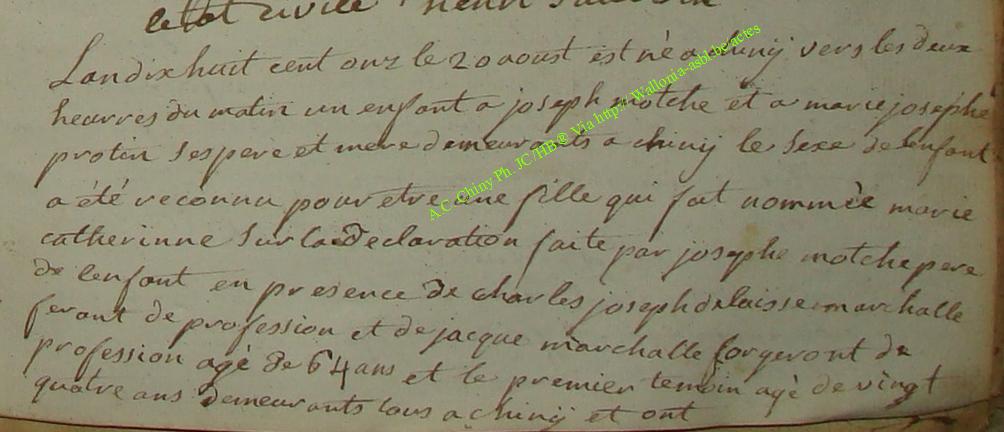 letat civille henri
Landixhuit cent onz le 20 aoust est né a chinij vers les deux
heurres du matin un enfant a joseph motche et a marie josephe
protin ses pere et mere demeurants a chinij le sexe de lenfant
a été reconnu pour etre une fille qui fut nommèe marie
catherinne sur la declaration faite par josephe motche pere
de lenfant en presence de charles joseph delaisse marchalle
ferant de profession et de jacque marchalle forgeront de
profession agè de 64 ans et le premier temoin agè de vingt
quatre ans demeurants tous a chinij et ont
A.C. Chiny Ph. JC/HB® Via https:Wallonia-asbl.be/actes